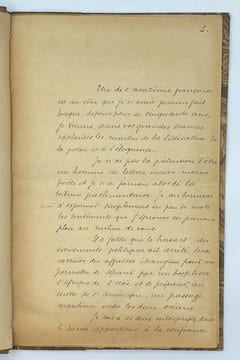 1.
Être de l'académie française
est un rêve que je n'avais jamais fait
lorsque, depuis plus de cinquante ans,
je venais, dans vos grandes séances,
applaudir les maîtres de la littérature, de
la poésie et de l'éloquence.
Je n'ai pas la prétention d'être
un homme de lettres, encore moins
poète et je n'ai jamais abordé la
tribune parlementaire. Je me bornerai
à exprimer simplement en peu de mots
les sentiments que j'éprouve en prenant
place au milieu de vous.
Il a fallu que le hasard des
évènements politiques ait arrêté ma
carrière des affaires étrangères pour me
permettre de séparer par un bosphore
l'afrique de l'asie et de préparer, au
centre de l'amérique, un passage
maritime entre les deux océans.
Je dois à ces deux entreprises dont
le succès appartient à la confiance